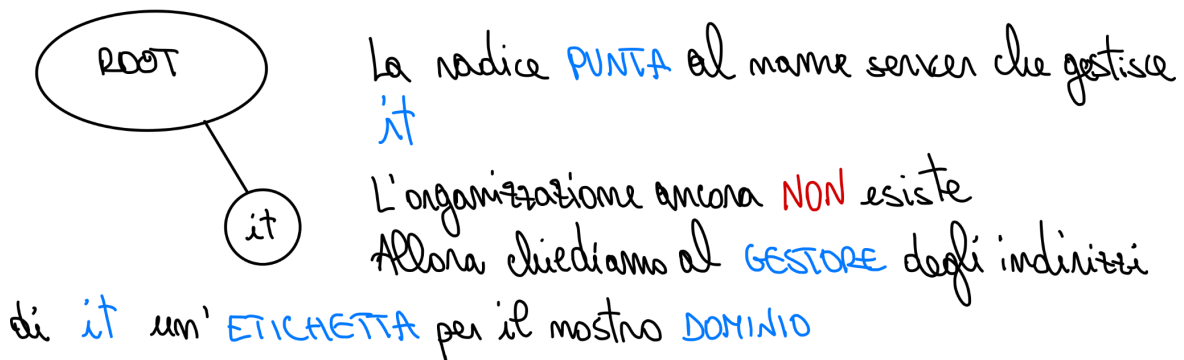 ROOT
La radice PUNTA al name server che gestisce
it
it
L'organizzazione ancora NON esiste
Allora chiediamo al GESTORE degli indirizzi
di it un' ETICHETTA per il nostro DOMINIO